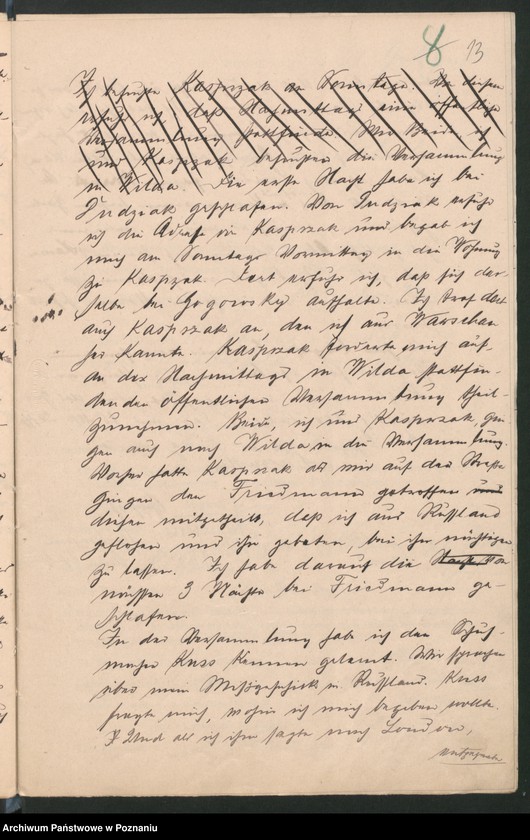 8 13
Ich besuchte Kasprzak am Sonntage. An diesem
erfuhr ich, daß Nachmittags eine öffentliche
Versammlung stattfinde. Wir Beide, ich
und Kasprzak besuchten die Versammlung
in Wilda. Die erste Nacht habe ich bei
Dudziak geschlafen. Von Dudziak erfuhr
ich die Adresse von Kasprzak und begab ich
mich am Sonntage Vormittag in die Wohnung
zu Kasprzak. Dort erfuhr ich, daß sich der-
selbe bei Gogowsky aufhalte. Ich traf dort
auch Kasprzak an, den ich aus Warschau
her kannte. Kasprzak forderte mich auf,
an der Nachmittags in Wilda stattfin-
denden öffentlichen Versammlung theil-
zunehmen. Beide, ich und Kasprzak, gin-
gen auch nach Wilda in die Versammlung.
Vorher hatte Kasprzak als wir auf der Straße
gingen den Friedmann getroffen und
diesem mitgetheilt, daß ich aus Russland
geflohen und ihn gebeten, bei ihm nächtigen
zu lassen. Ich habe darauf die Nacht von
nächsten 3 Nächte bei Friedmann ge-
schlafen.
In der Versammlung habe ich den Schuh-
macher Kuss kennen gelernt. Wir sprachen
über mein Mißgeschick in Russland. Kuss
fragte mich, wohin ich mich begeben wolle.
Und als ich ihm sagte nach London,
Archiwum Państwowe w Poznaniu